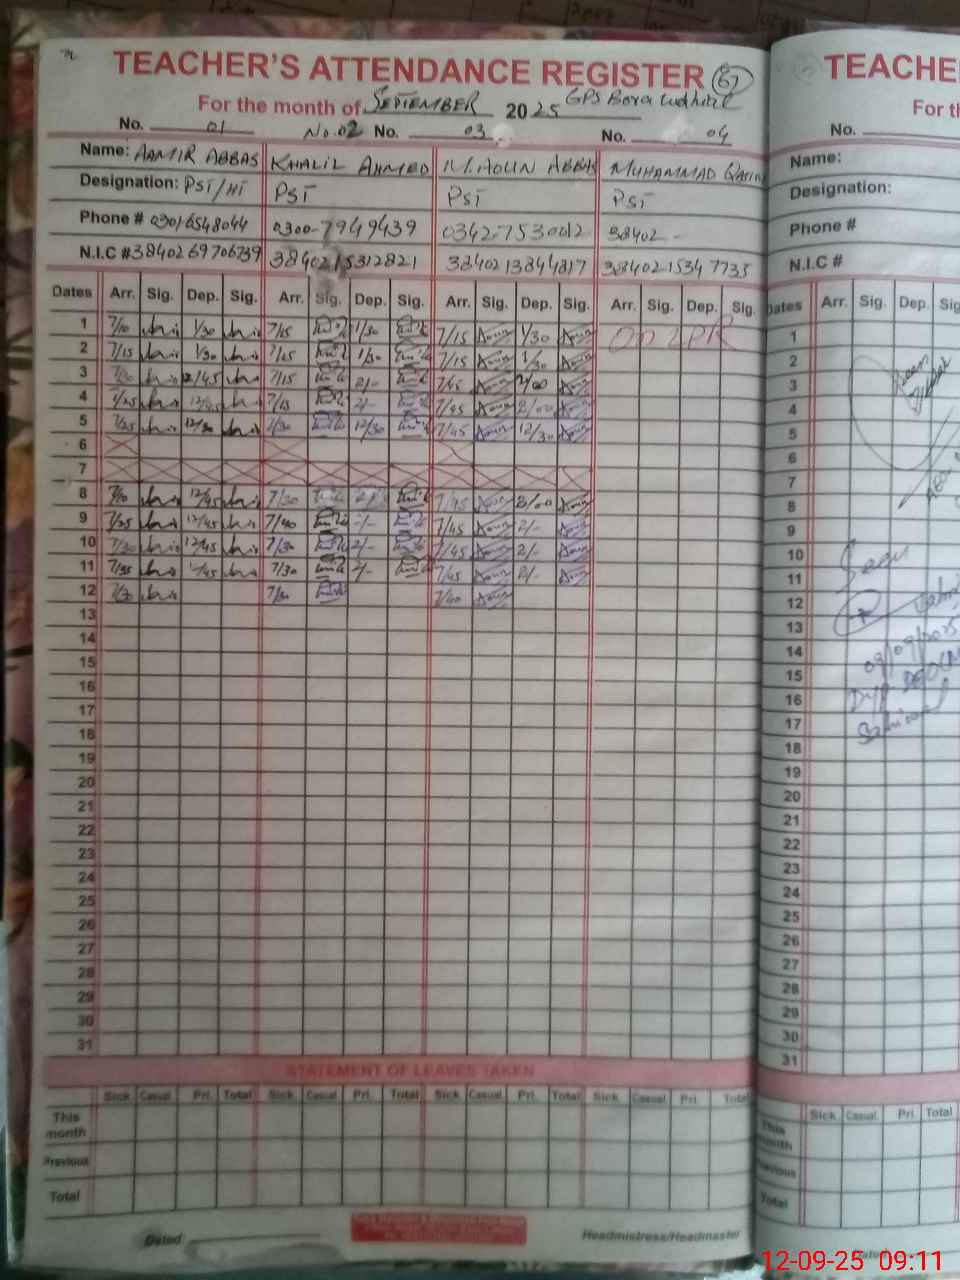 TEACHER'S ATTENDANCE REGISTER 67
For the month of SEPTEMBER 2025 GPS Bora Ludhial
No. 01 No. 02 No. 03 No. 04
Name: AAMIR ABBAS KHALIL AHMED M. AOUN ABBAS MUHAMMAD QASIM
Designation: PST/HT PST PST PST
Phone # 03016548044 0300-7949439 0342-7530012 38402 -
N.I.C # 3840269706739 3840215312821 3840213844817 3840215347735
Dates Arr. Sig. Dep. Sig. Arr. Sig. Dep. Sig. Arr. Sig. Dep. Sig. Arr. Sig. Dep. Sig.
1 7/10 1/30 7/15 1/30 7/15 1/30 On LPR
2 7/15 1/30 7/15 1/30 7/15 1/30
3 7/30 12/45 7/15 2/- 7/45 2/00
4 7/25 12/45 7/15 2/- 7/45 2/00
5 7/25 12/30 7/30 12/30 7/45 12/30
6
7
8 7/10 12/45 7/30 7/45 2/00
9 7/25 12/45 7/40 2/- 7/45 2/-
10 7/30 12/45 7/30 2/- 7/45 2/-
11 7/35 12/45 7/30 2/- 7/45 2/-
12 7/30 7/30 7/40
13
14
15
16
17
18
19
20
21
22
23
24
25
26
27
28
29
30
31
STATEMENT OF LEAVES TAKEN
Sick Casual Pri. Total Sick Casual Pri. Total Sick Casual Pri. Total Sick Casual Pri. Total
This month
Previous
Total
Dated: Headmistress/Headmaster
TEACHE
For th
No.
Name:
Designation:
Phone #
N.I.C #
Dates Arr. Sig. Dep. Sig
1
2
3
4
5
6
7
8
9
10
11
12
13
14
15
16
17
18
19
20
21
22
23
24
25
26
27
28
29
30
31
Seen
09/09/2025
Sick Casual Pri. Total
This month
Previous
Total
12-09-25 09:11